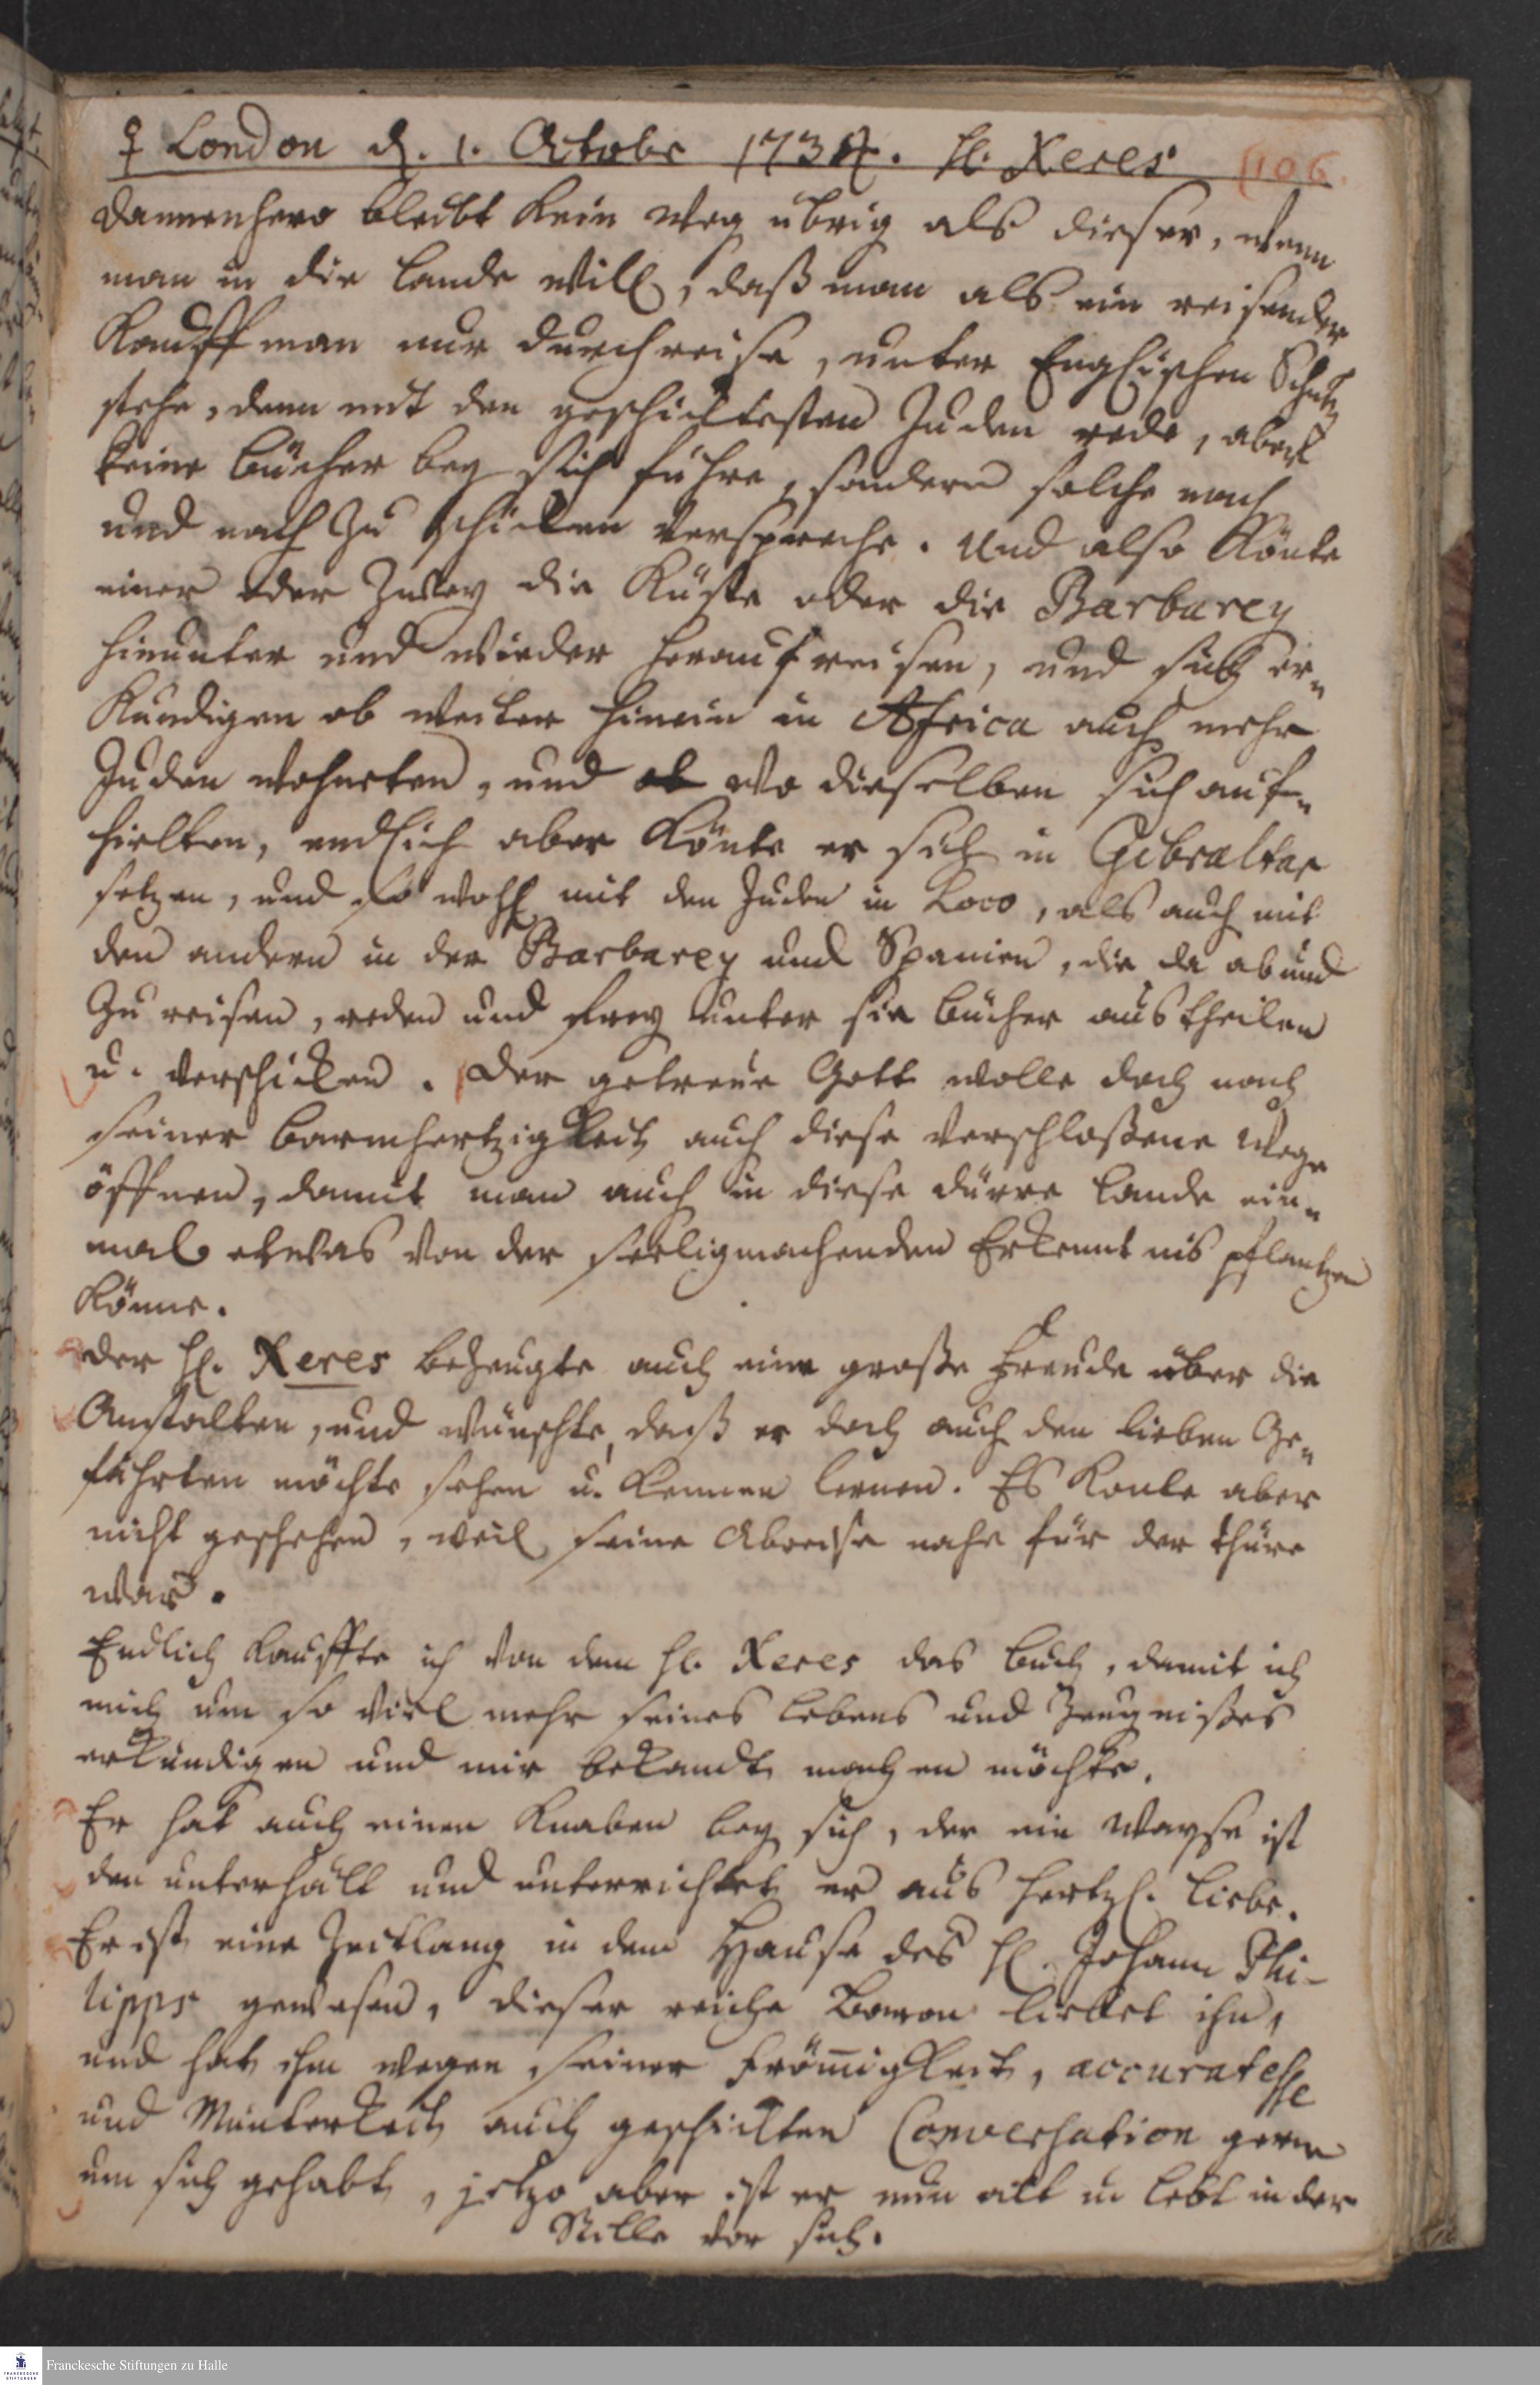 ♀ London d. 1. Octobr 1734. H. Xeres (106.
Dannenhero bleibt kein Weg übrig als dieser, wenn
man in die Lande will, daß man als ein reisender
Kauffman nur durchreise, unter Englischen Schutz
stehe, denn mit den geschicktesten Juden rede, aber
keine Bücher bey sich führe, sondern solche nach
und nach zu schicken verspreche. Und also könte
einer oder Zwey die Küste oder die Barbarey
hinunter und wieder herauf reisen, und sich er-
kundigen ob weiter hinein in Africa auch mehr
Juden wohneten, und ob wo dieselben sich auf-
hielten, endlich aber könte er sich in Gibraltar
setzen, und so wohl mit den Juden in Loco, als auch mit
den andern in der Barbarey und Spanien, die da ab und
zu reisen, reden und frey unter sie Bücher austheilen
u. verschicken. Der getreue Gott wolle doch nach
seiner Barmhertzigkeit auch diese verschloßene Wege
öffnen, damit man auch in diese dürre Lande ein-
mal etwas von der seeligmachenden Erkenntnis pflantzen
könne.
Der H. Xeres bezeugte auch eine große Freude über die
Anstalten, und wünschte, daß er doch auch den lieben Ge-
fährten möchte sehen u. kennen lernen. Es konte aber
nicht geschehen, weil seine Abreise nahe für der Thüre
war.
Endlich kauffte ich von dem H. Xeres das Buch, damit ich
mich um so viel mehr seines Lebens und Zeugnißes
erkundigen und mir bekandt machen möchte.
Er hat auch einen Knaben bey sich, der ein Wayse ist
den unterhält und unterrichtet er aus hertzl. Liebe.
Er ist eine Zeitlang in dem Hause des H. Johann Phi-
lipps gewesen, dieser reiche Baron liebet ihn,
und hat ihn wegen seiner Frömigkeit, accuratesse
und Munterkeit auch geschickten Conversation gerne
um sich gehabt, jetzo aber ist er nun alt u lebt in der
Stille vor sich.
Franckesche Stiftungen zu Halle
FRANCKESCHE
STIFTUNGEN